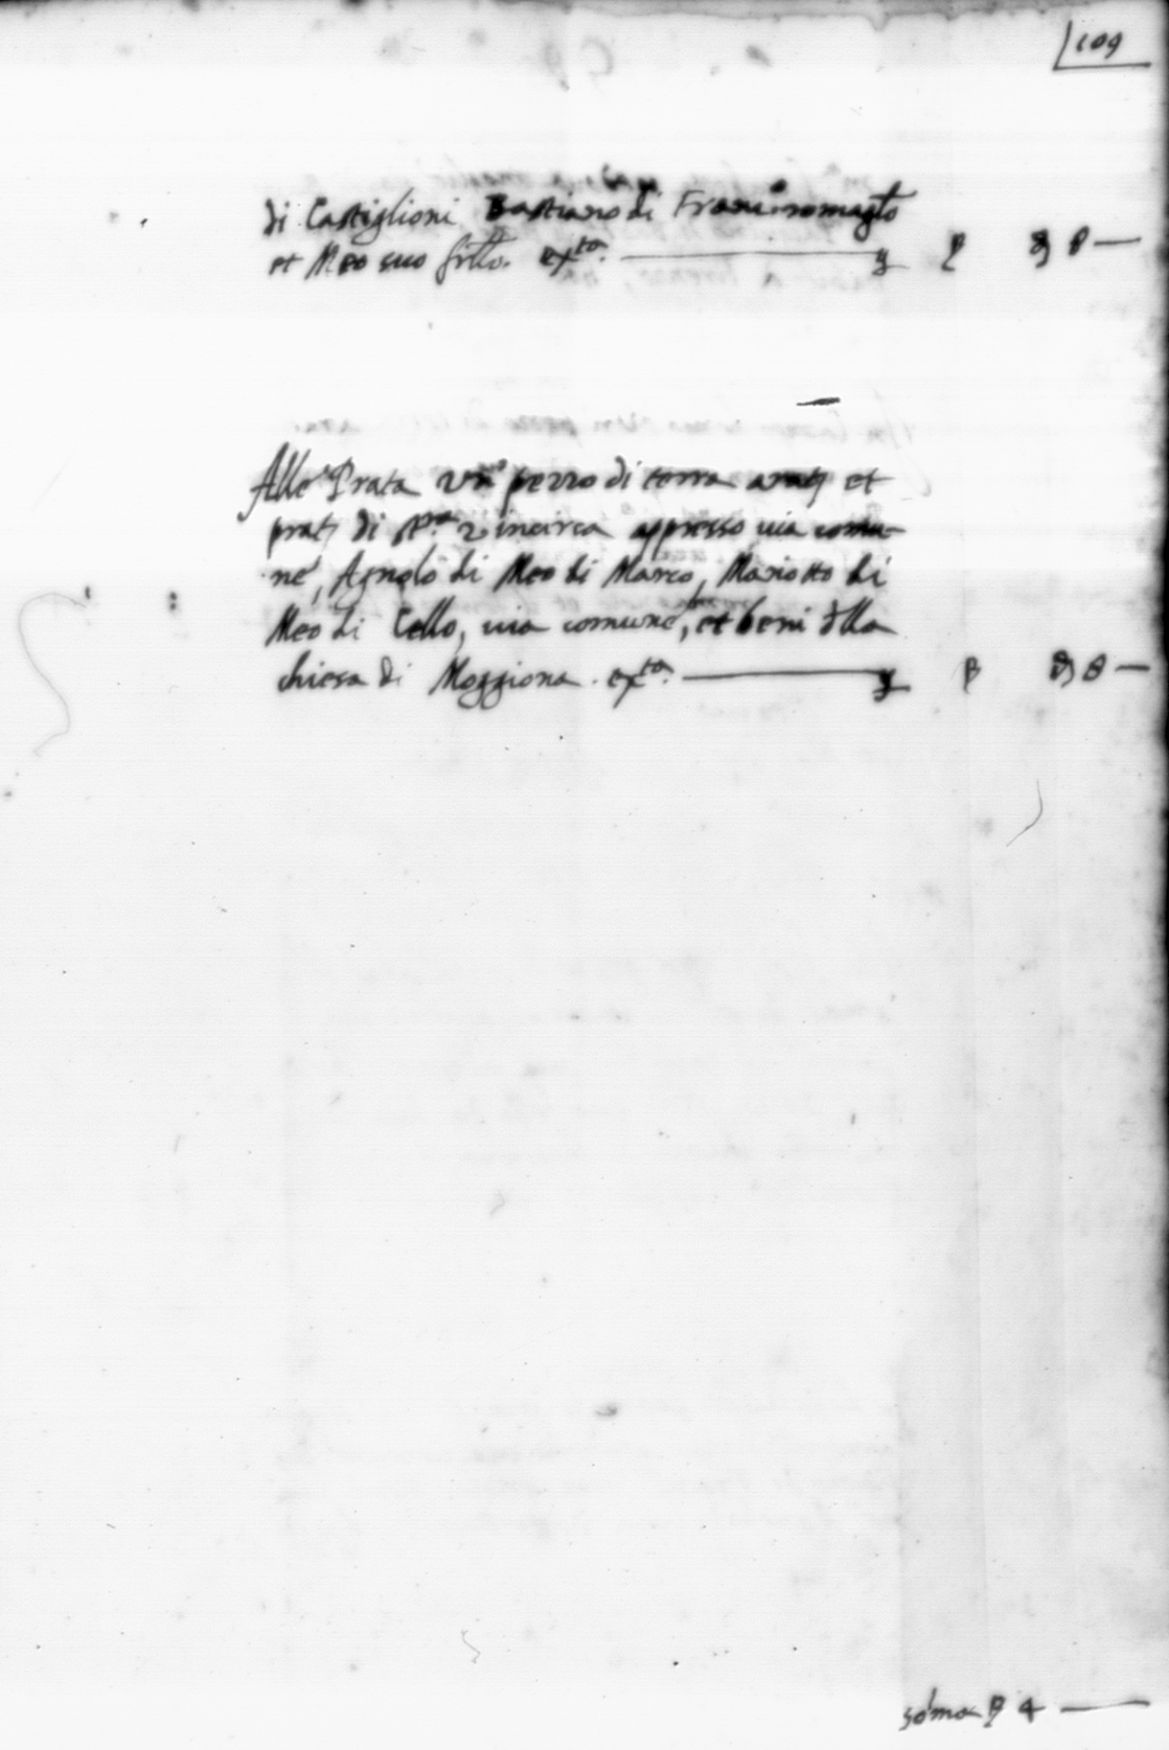 109
di Castiglioni Bastiano di Franc.º romag.lo
et Meo suo fillo. exto. β 8 —
Alle Prata uno pezzo di terra arat. et
prat. di st.ra 2 incirca appresso uia comu-
ne, Agnolo di Meo di Marco, Mariotto di
Meo di Cello, uia comune, et beni della
chiesa di Moggiona. exta. β 8 —
soma 4 —